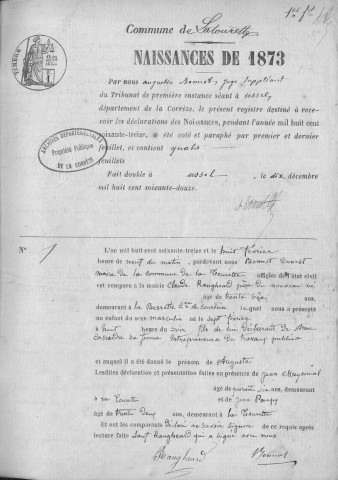 Commune de Latourette
NAISSANCES DE 1873
TIMBRE
Par nous Bonnet, juge suppléant
du Tribunal de première instance séant à Ussel,
département de la Corrèze, le présent registre destiné à rece-
voir les déclarations des Naissances, pendant l'année mil huit cent
soixante-treize, a été coté et paraphé par premier et dernier
feuillet, et contient quatre
feuillets
ARCHIVES DÉPARTEMENTALES
Propriété Publique
DE LA CORRÈZE
Fait double à Ussel, le dix décembre
mil huit cent soixante-douze.
N° 1
L'an mil huit cent soixante-treize et le huit février
heure de neuf du matin, pardevant nous Bonnet Ernest
maire de la commune de la Tourette officier de l'état civil
est comparu à la mairie Claude Rangheard père du nouveau né
âgé de trente
demeurant à la lequel nous a présenté
un enfant du sexe masculin né le sept février
à huit heure du soir fils de lui déclarant et de
sa femme entrepreneur de travaux publics
et auquel il a été donné le prénom de Auguste
Lesdites déclaration et présentation faites en présence de Jean
âgé de ans, demeurant
à La Tourette et de Jean
âgé de trente deux ans, demeurant à la Tourette
Et ont les comparants déclaré ne savoir signer de ce requis après
lecture faite sauf Rangheard qui a signé avec nous.
Rangheard Bonnet